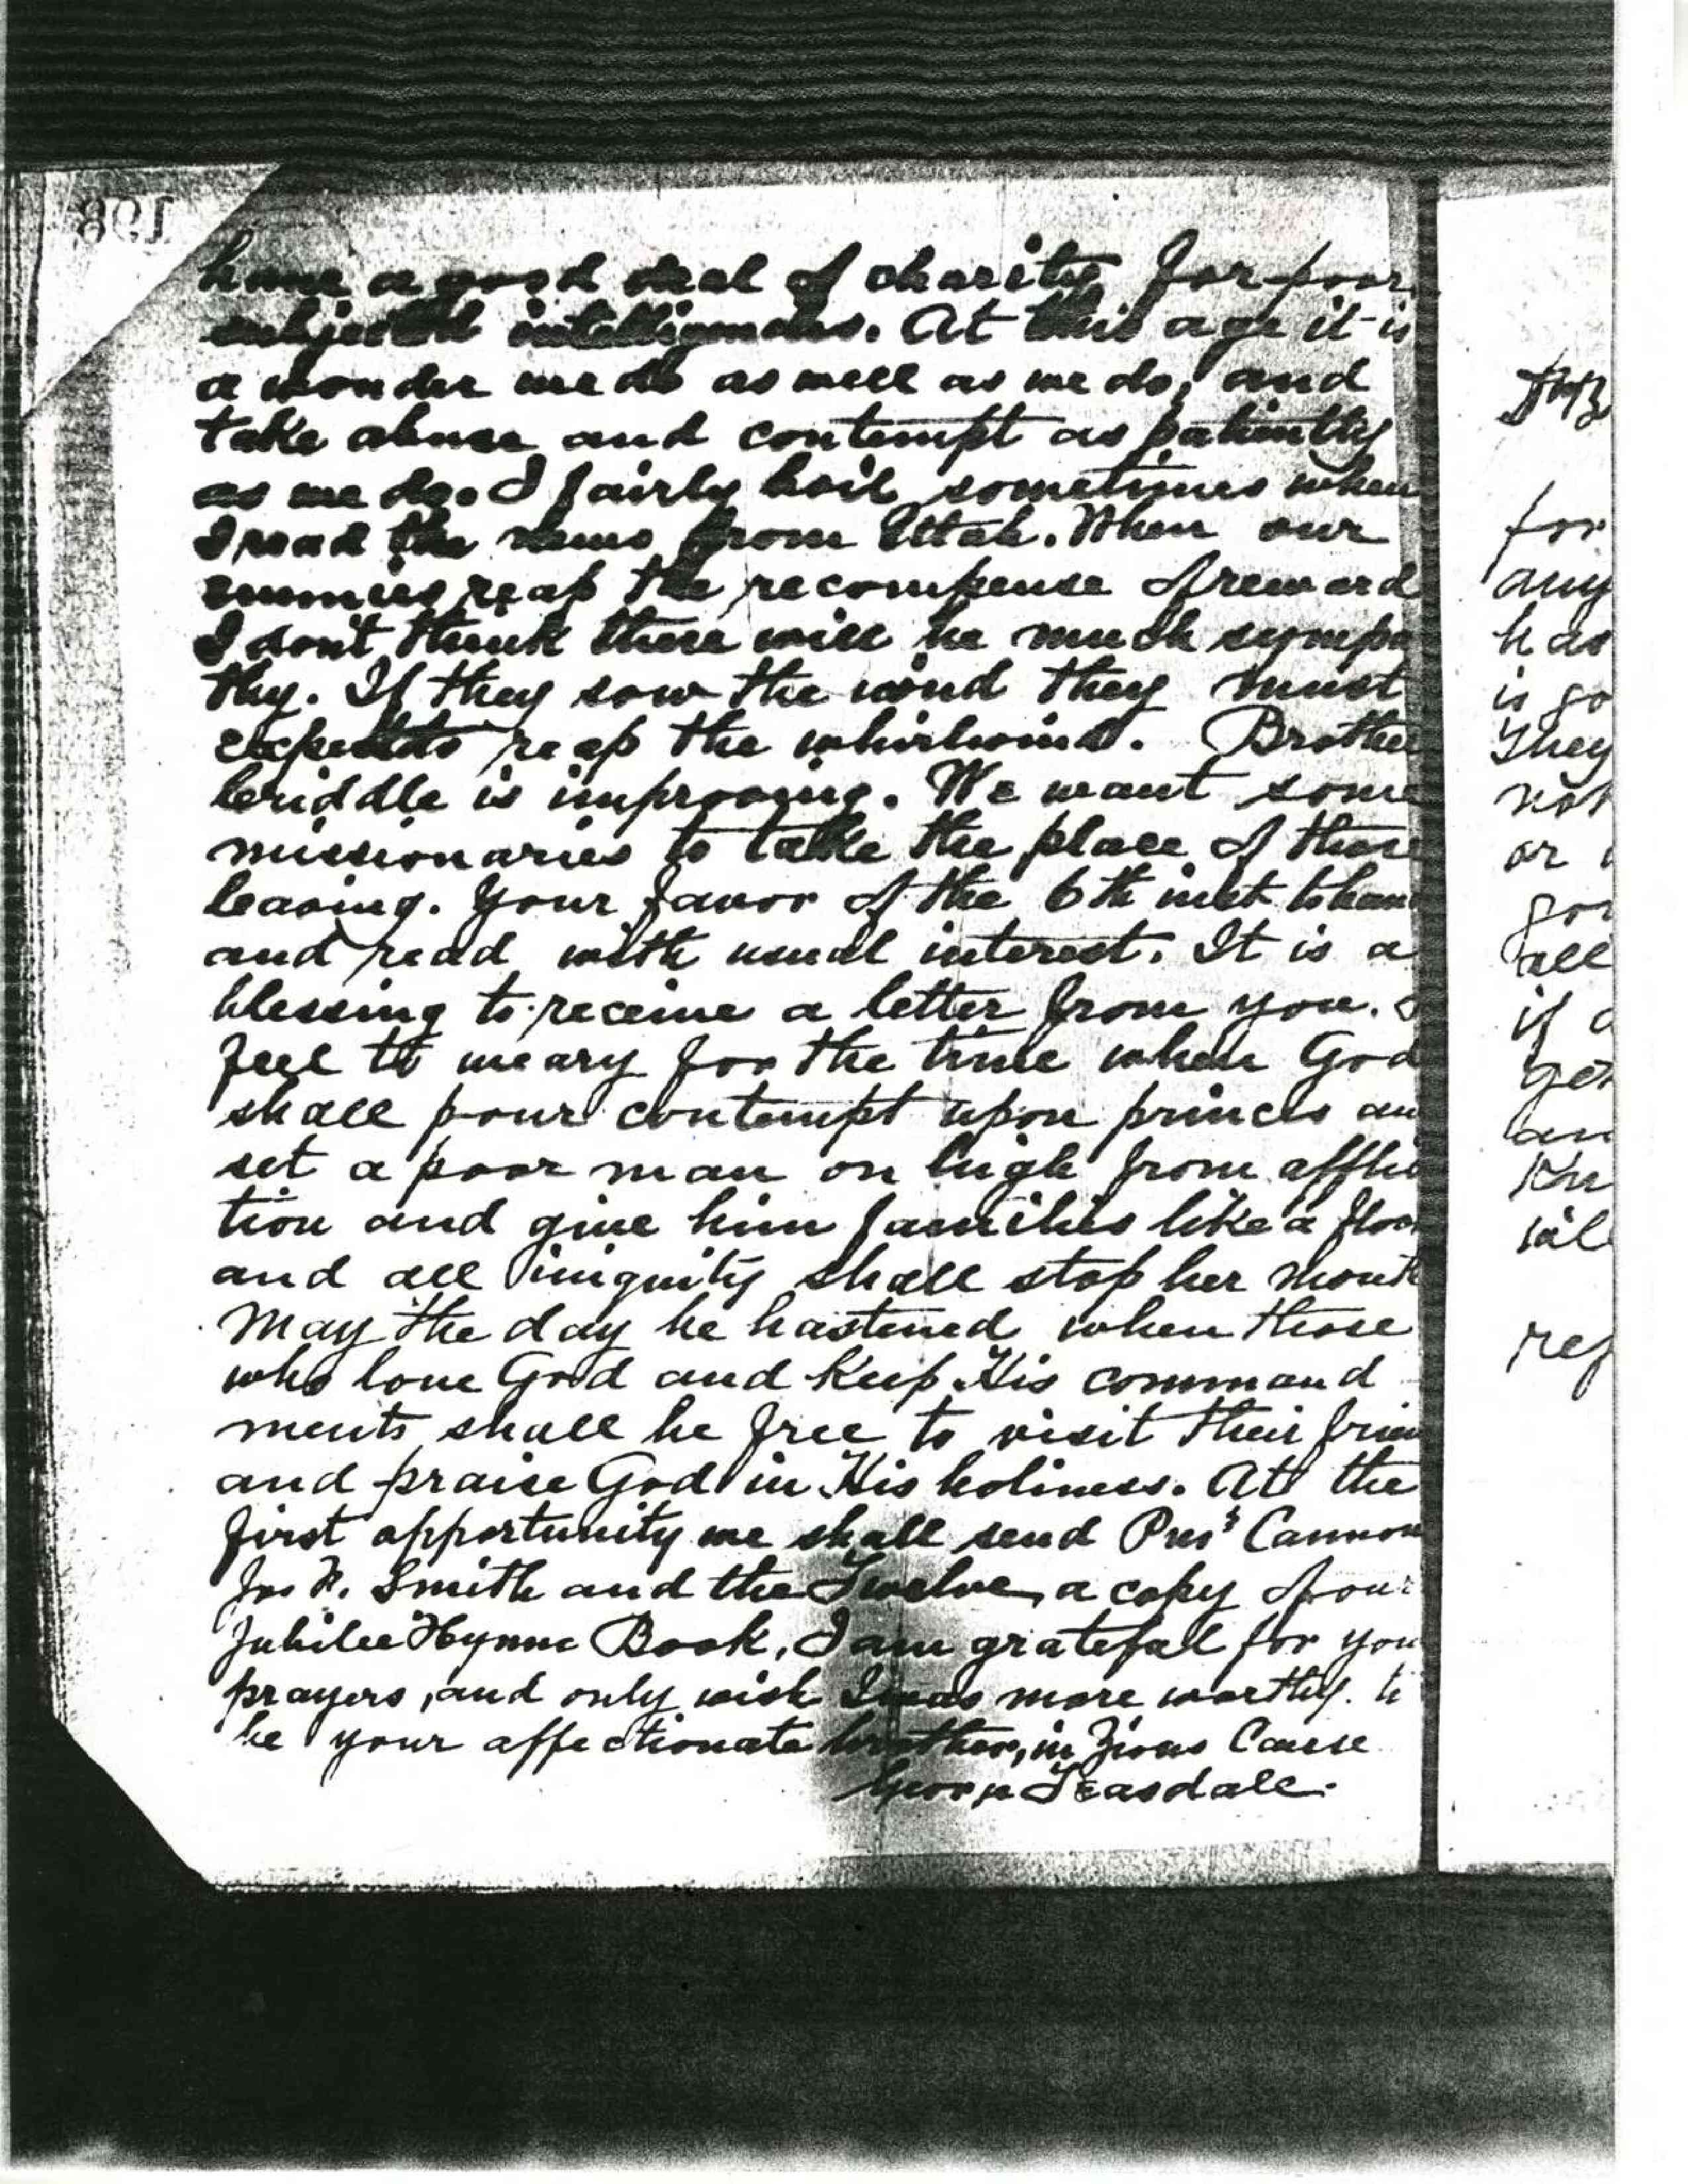 198
have a good deal of charity for poor
subjected intelligences. At this age it is
a wonder we do as well as we do, and
take abuse and contempt as patiently
as we do. I fairly boil sometimes when
I read the news from Utah. When our
enemies reap the recompense of reward
I don't think there will be much sympa
thy. If they sow the wind they must
expect to reap the whirlwind. Brother
Criddle is improving. We want some
missionaries to take the place of those
leaving. Your favor of the 6th inst to han
and read with usual interest. It is a
blessing to receive a letter from you. I
feel to weary for the time when God
shall pour contempt upon princes an
set a poor man on high from afflic
tion and give him families like a floc
and all iniquity shall stop her mouth
May the day be hastened when those
who love God and keep His command
ments shall be free to visit their frien
and praise God in His holiness. At the
first opportunity we shall send Pres's Cannon
Jos F. Smith and the Twelve, a copy of our
Jubilee Hymn Book. I am grateful for you
prayers, and only wish I was more worthy. to
be your affectionate brother, in Zions Cause
George Teasdale.
for
any
has
is go
They
not
or
goi
all
if
get
an
Kn
wil
rep